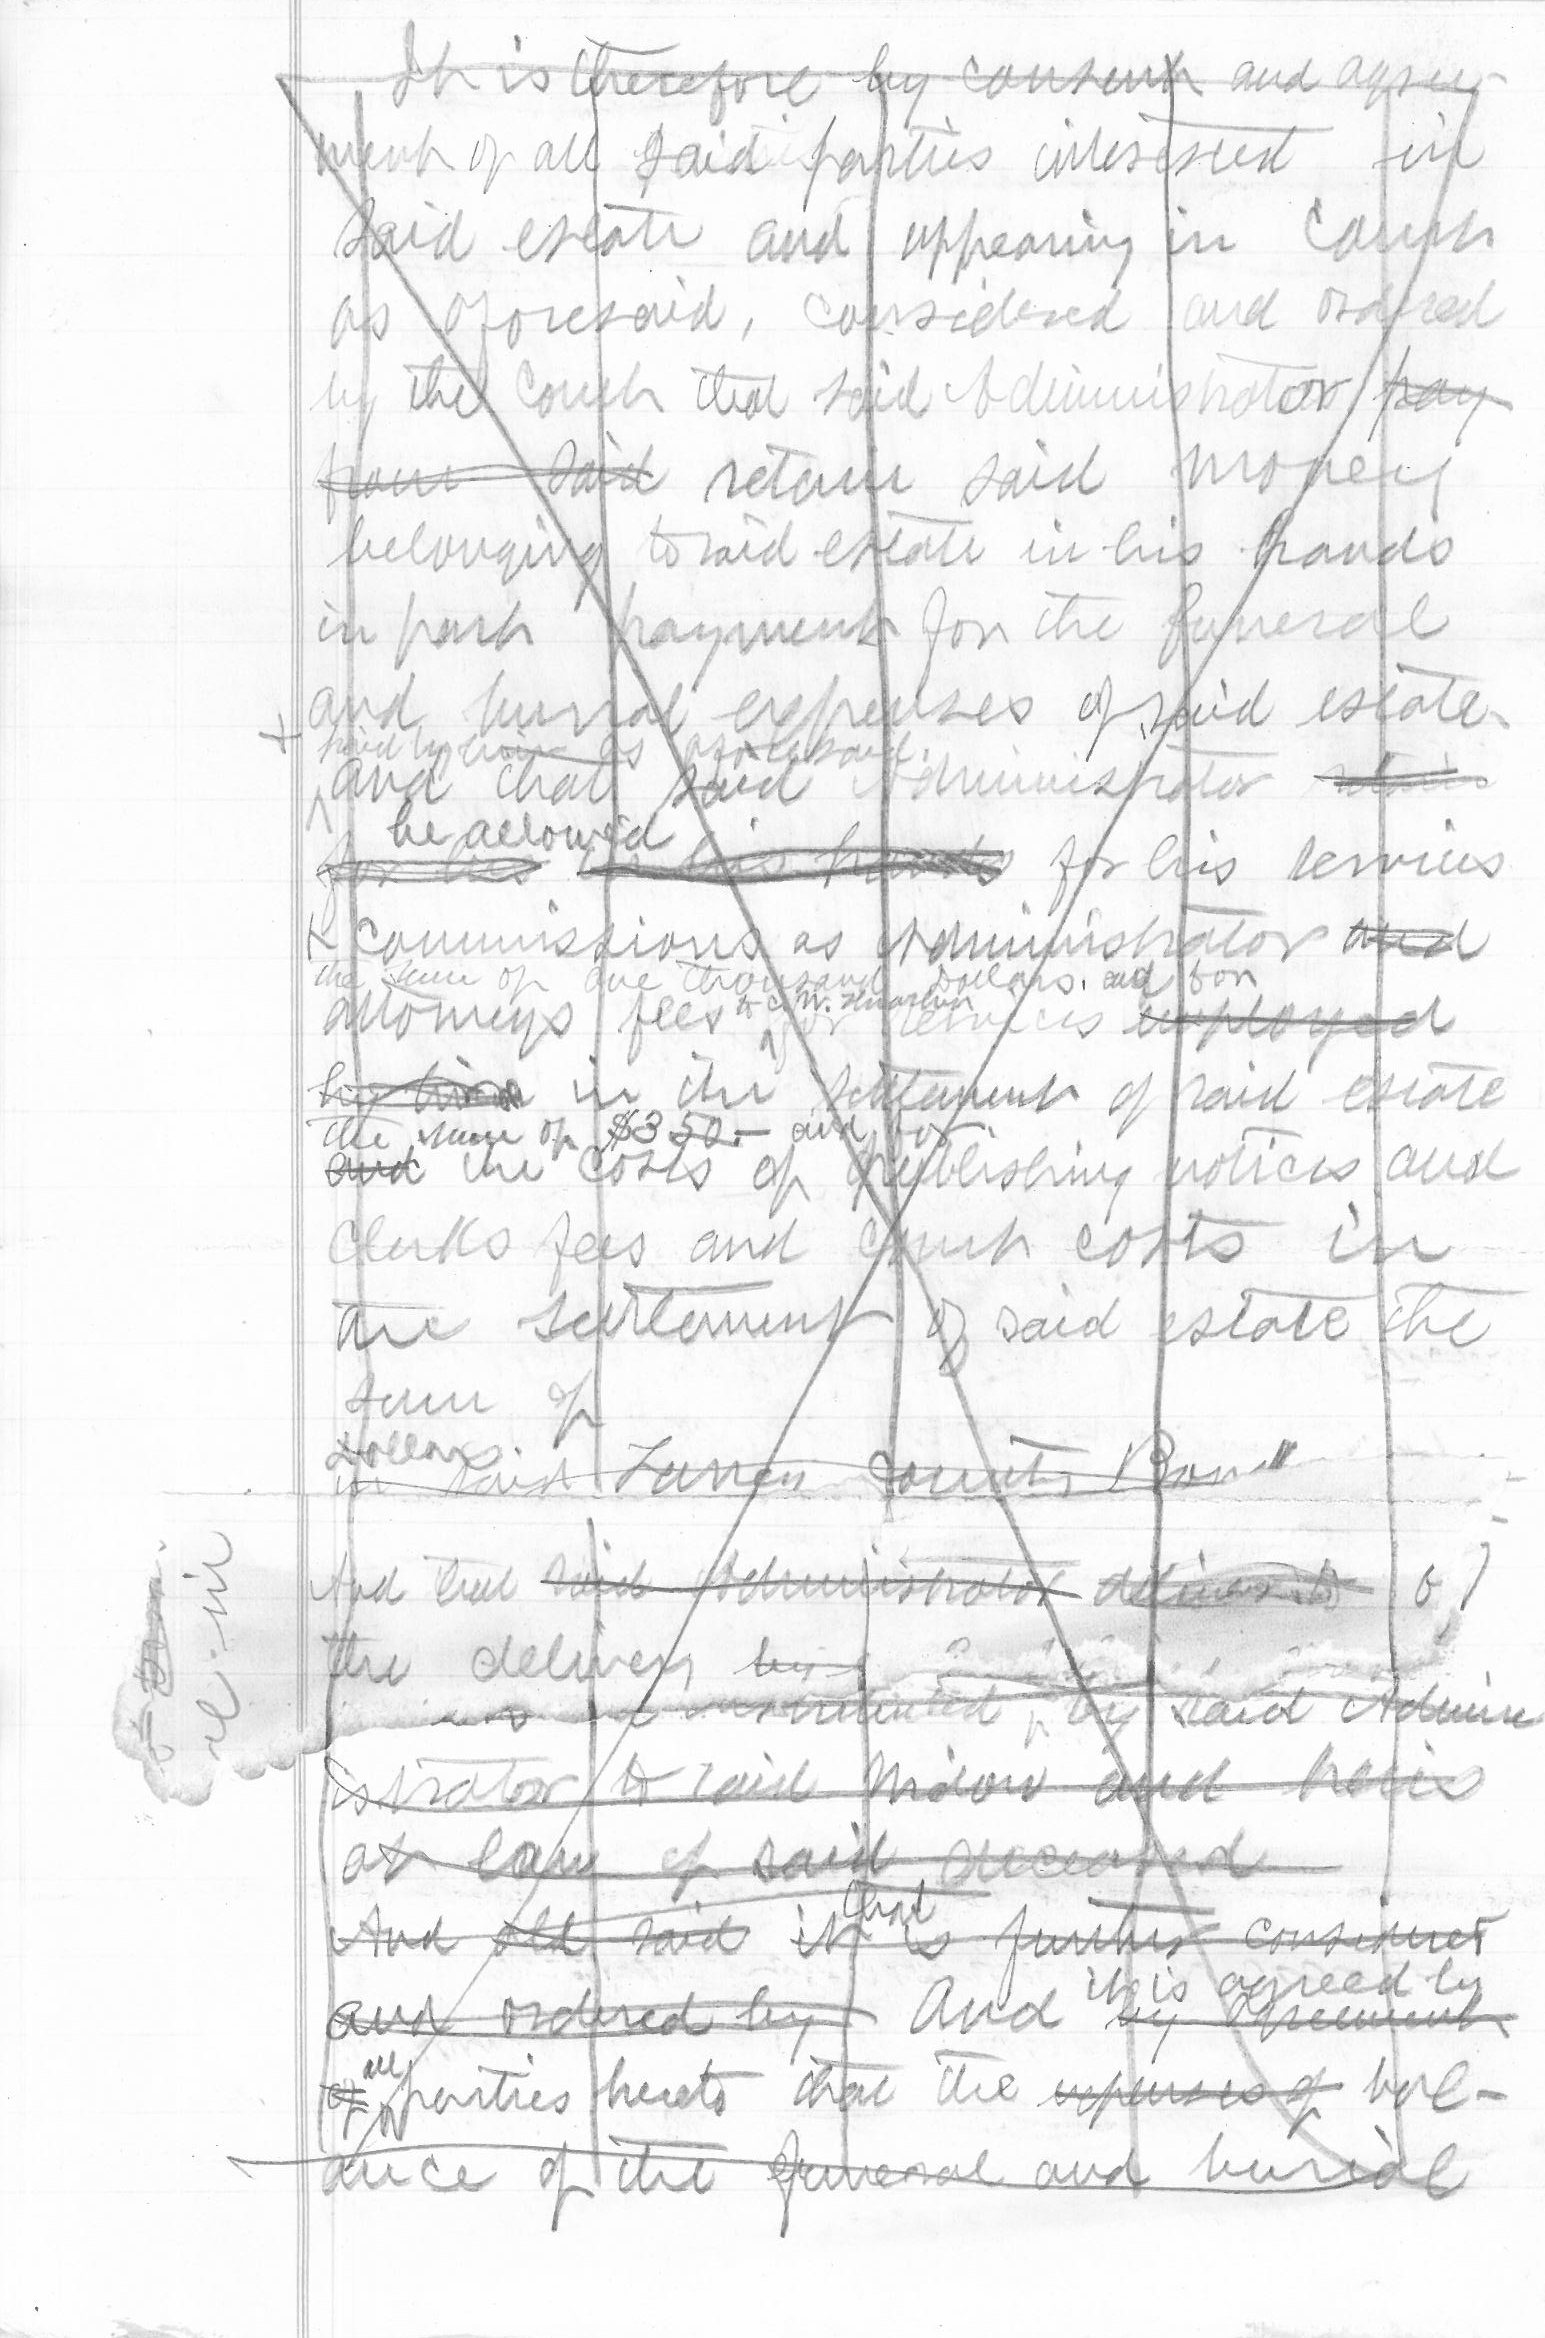 It is therefore by consent and agree-
ment of all said parties interested in
said estate and appearing in Court
as aforesaid, considered and ordered
by the Court that said Administrator pay
from said return said money
belonging to said estate in his hands
in part payment for the funeral
and burial expenses of said estate
paid by him as aforesaid
and that said Administrator retain
be allowed
for his in his hands for his services
& Commissions as Administrator and
the sum of one thousand Dollars. and for
attorneys fees to C. W. for services employed
by him in the settlement of said estate
the sum of $350.- and for
and the costs of publishing notices and
Clerks fees and Court costs in
the settlement of said estate the
sum of
Dollars.
in said County Bon
And that said Administrator deliver to
the delivery by
by said Admin
istrator to said Widow and heirs
at law of said deceased
that
And all said it is further considered
and ordered by And by agreement
it is agreed by
of all parties hereto that the expenses of bal-
ance of the funeral and burial